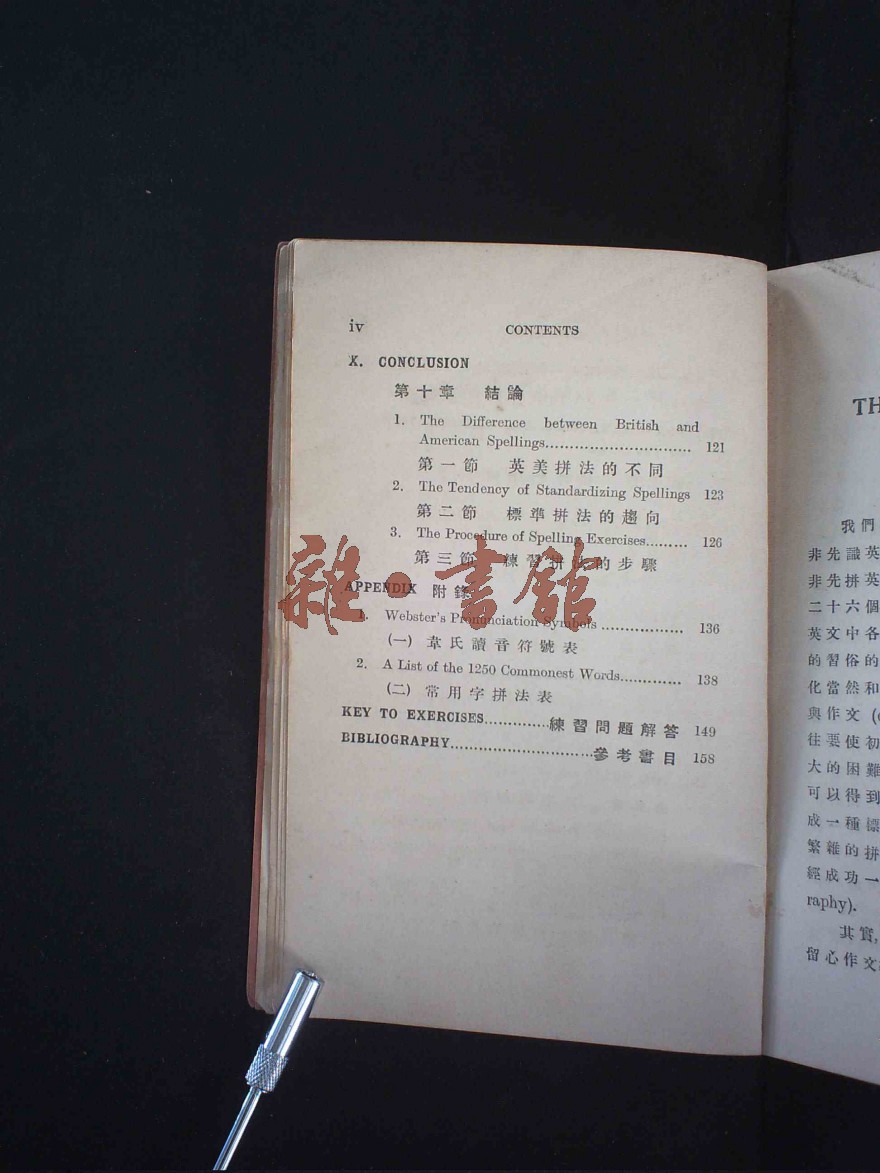 iv CONTENTS
X. CONCLUSION
第十章 結論
1. The Difference between British and
American Spellings 121
第一節 英美拼法的不同
2. The Tendency of Standardizing Spellings 123
第二節 標準拼法的趨向
3. The Procedure of Spelling Exercises 126
第三節 練習拼法的步驟
APPENDIX 附錄
1. Webster's Pronunciation Symbols 136
(一) 韋氏讀音符號表
2. A List of the 1250 Commonest Words 138
(二) 常用字拼法表
KEY TO EXERCISES 練習問題解答 149
BIBLIOGRAPHY 參考書目 158
雜·書館
TH
我們
非先識英
非先拼英
二十六個
英文中各
的習俗的
化當然和
與作文
往要使初
大的困難
可以得到
成一種標
繁雜的拼
經成功一
raphy).
其實,
留心作文